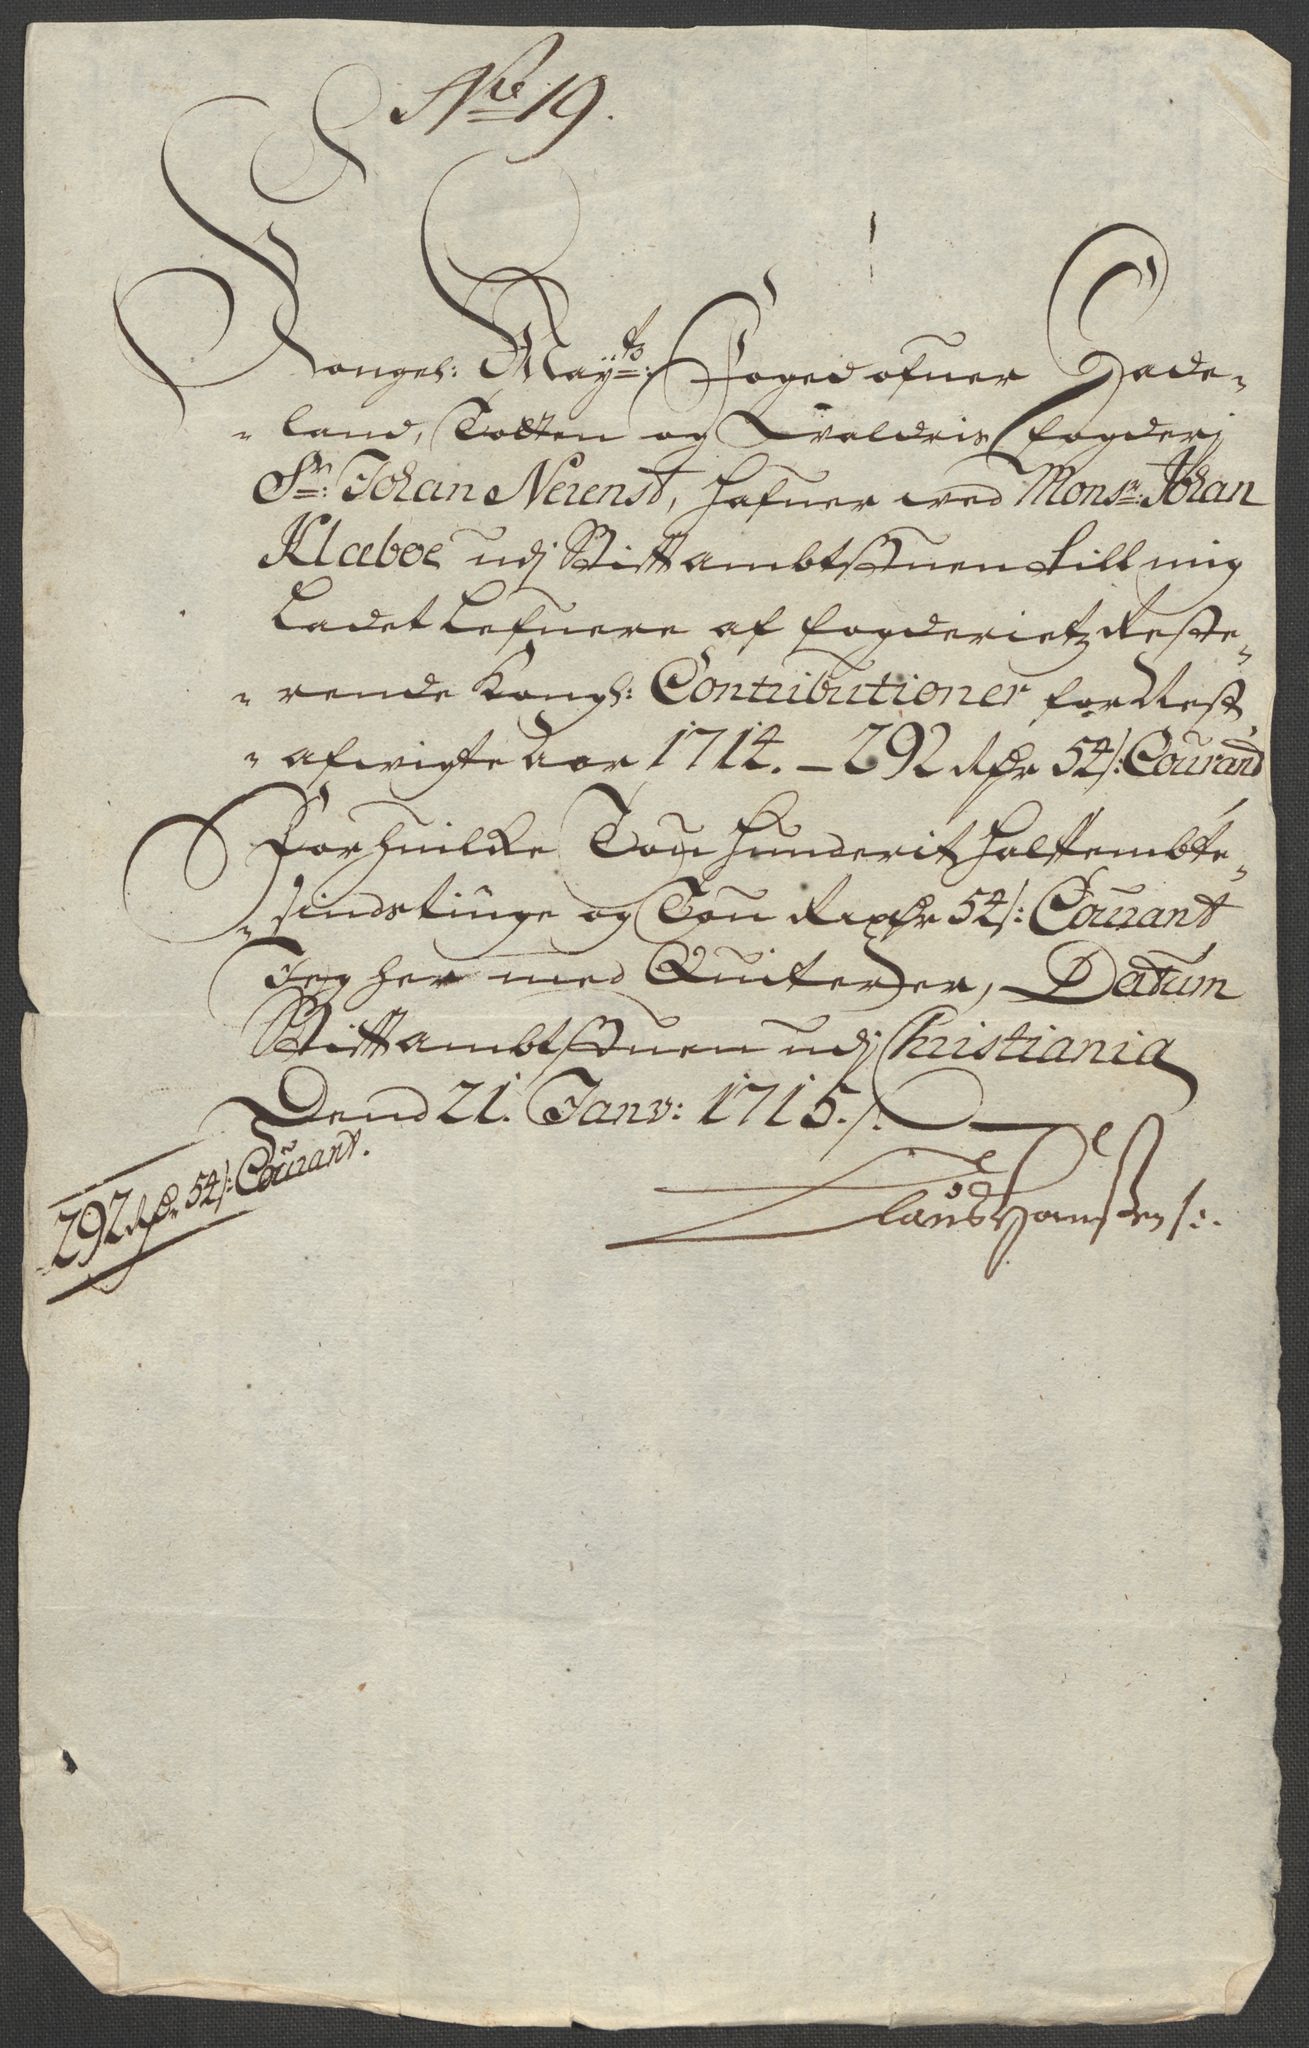 No 19.
Kongel: Mayts: Foged ofuer Hade-
land, Totten og Waldris fogderj
Sr: Johan Neienst, hafuer wed Monsr: Johan
Klæboe udj Stiftambtstuen till mig
Ladet Lefuere af fogderietz Reste-
rende Kongl: Contributioner for Nest
afwigte Aar 1714. – 292 Rdr 54 s: Courand
For huilcke Tou hunderit halffembte-
sindstiuge og Tou Rixdr 54 s: Courant
Jeg her med Quiterer, Datum
Stiftambtstuen udj Christiania
Dend 21. Janv: 1715.
292 Rdr 54 s: Courant.
Claus Hansen